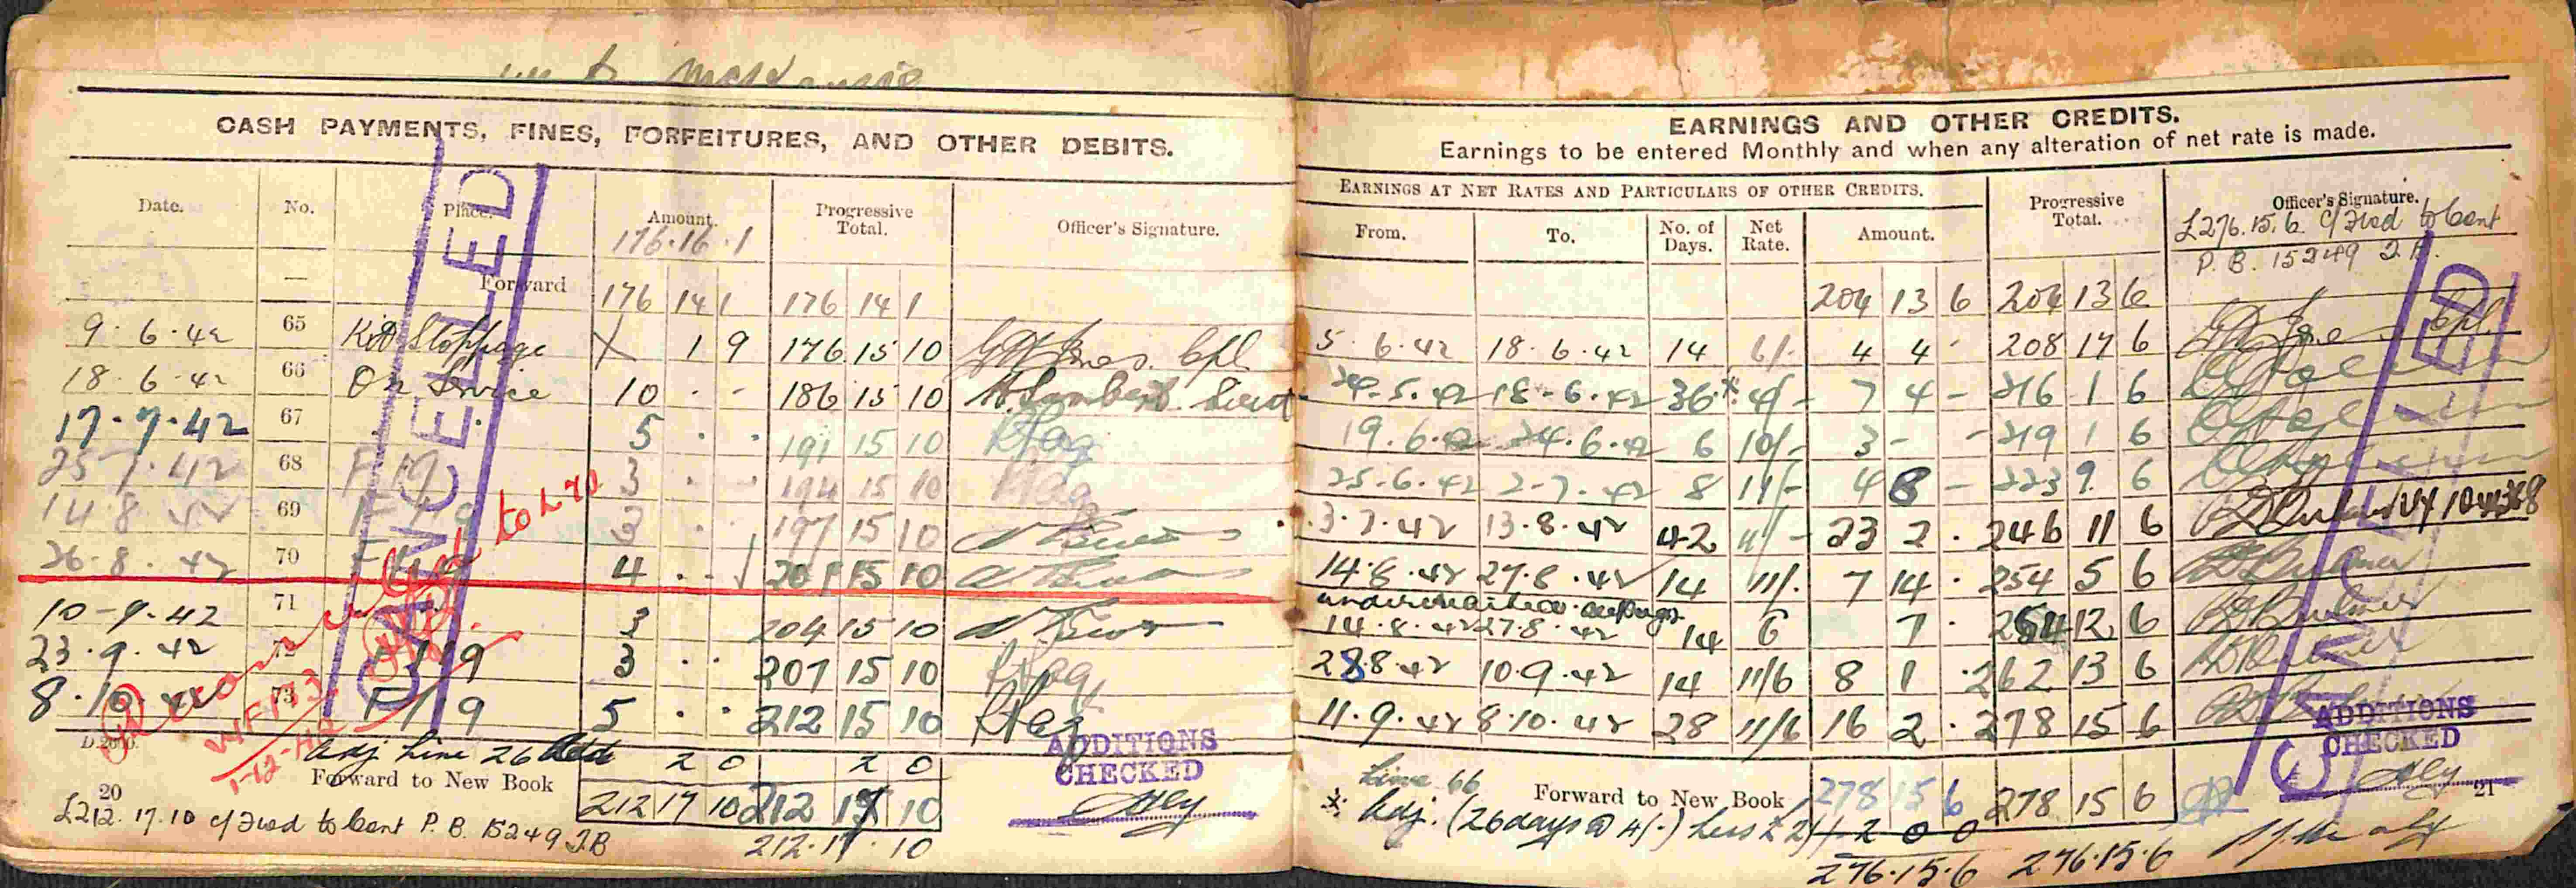 to McKenzie
CASH PAYMENTS, FINES, FORFEITURES, AND OTHER DEBITS.
Date. No. Place. Amount. Progressive Total. Officer's Signature.
176.16.1
— Forward 176 14 1 176 14 1
9.6.42 65 Kit Stoppage X 1 9 176 15 10 Cpl
18.6.42 66 On Service 10 . - 186 15 10 Lambert Lieut
17.7.42 67 5 . . 191 15 10
25 7.42 68 F 19 3 . - 194 15 10
14.8.42 69 F 19 3 . 197 15 10
26.8.42 70 4 . . 201 15 10
10-9-42 71 3 204 15 10
23.9.42 72 F 19 3 . . 207 15 10
8.10.42 73 F/19 5 . . 212 15 10
CANCELLED
to L 70
WF173
1-12-42
D.2660.
Adj Line 26 2 0 2 0
Forward to New Book 212 17 10 212 17 10
20
£212.17.10 c/fwd to Cent P.B. 15249 J.B
212.17.10
ADDITIONS
CHECKED
EARNINGS AND OTHER CREDITS.
Earnings to be entered Monthly and when any alteration of net rate is made.
EARNINGS AT NET RATES AND PARTICULARS OF OTHER CREDITS. Progressive Total. Officer's Signature.
From. To. No. of Days. Net Rate. Amount.
£276.15.6. c/fwd to Cent
P.B. 15249 J.B.
204 13 6 204 13 6
5.6.42 18.6.42 14 6/- 4 4 - 208 17 6 Cpl
24.5.42 18-6.42 36 * 4/- 7 4 - 216 1 6
19.6.42 24.6.42 6 10/- 3 - - 219 1 6
25.6.42 2-7.42 8 11/- 4 8 - 223 9 6
3.7.42 13.8.42 42 11/- 23 2 . 246 11 6
14.8.42 27.8.42 14 11/- 7 14 . 254 5 6
14.8.42 27.8.42 14 6 7 . 254 12 6
28 8.42 10.9.42 14 11/6 8 1 . 262 13 6
11.9.42 8.10.42 28 11/6 16 2 . 278 15 6
ADDITIONS
CHECKED
Line 66
Forward to New Book 278 15 6 278 15 6
21
* Adj. (26 days @ 4/-) less £2/- 2 0 0
276.15.6 276.15.6